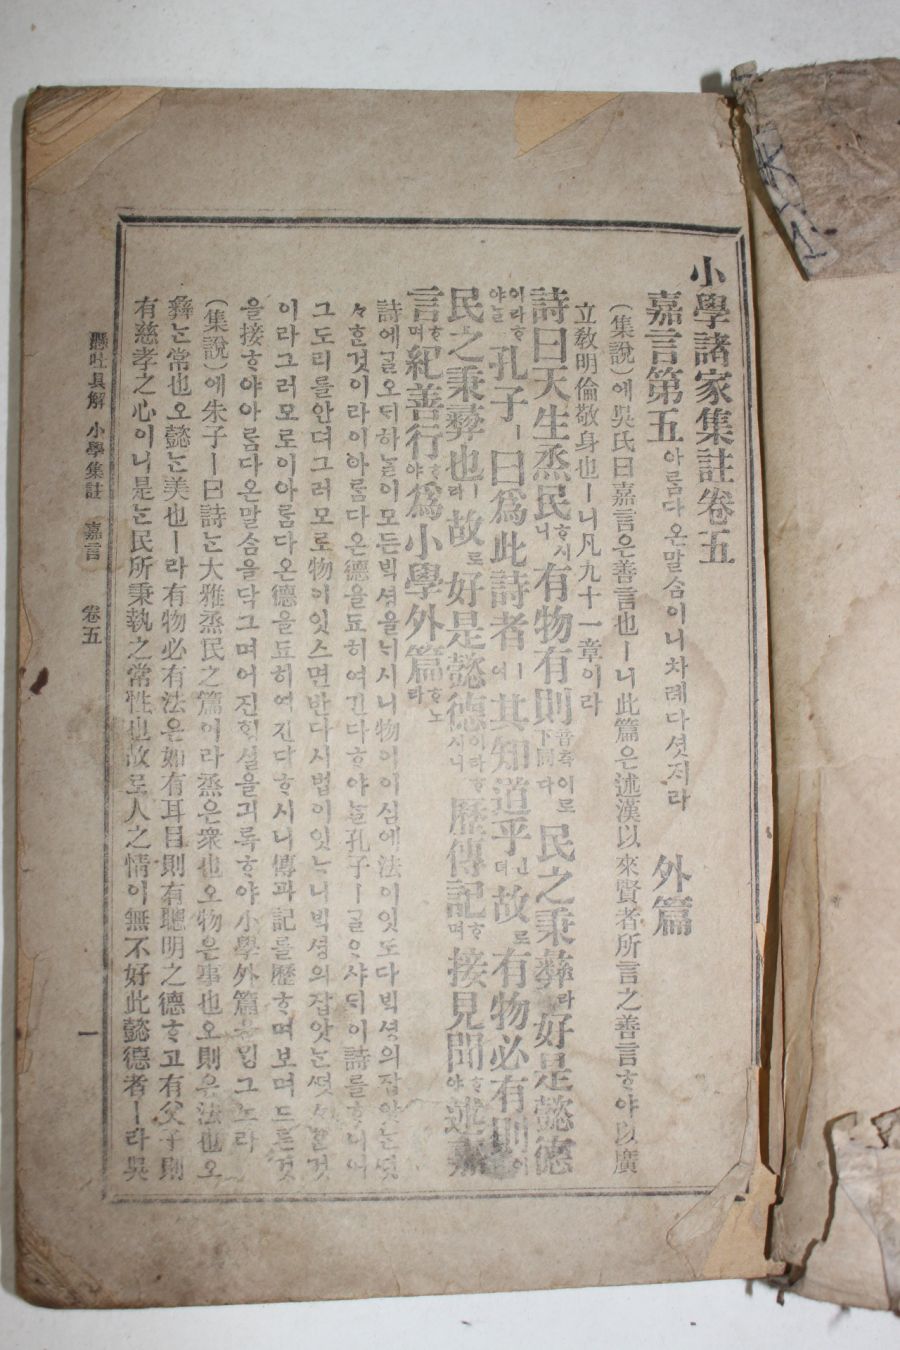 小學諸家集註卷五
嘉言第五 아ᄅᆞᆷ다온말ᄉᆞᆷ이니차례다ᄉᆞᆺ저라 外篇
(集說)에吳氏曰嘉言은善言也ㅣ니此篇은述漢以來賢者所言之善言ᄒᆞ야以廣
立敎明倫敬身也ㅣ니凡九十一章이라
詩曰天生烝民ᄒᆞ시니有物有則音측下同이로다民之秉彝라好是懿德
이라ᄒᆞ야ᄂᆞᆯ孔子ㅣ曰爲此詩者ㅣ여其知道乎ᅟᅵᆫ뎌故로有物必有則이
民之秉彝也ㅣ라故로好是懿德이라ᄒᆞ시니歷傳記ᄒᆞ며接見聞ᄒᆞ야述嘉
言ᄒᆞ며紀善行ᄒᆞ야爲小學外篇ᄒᆞ노라
詩에ᄀᆞᆯ오ᄃᆡ하ᄂᆞᆯ이모든ᄇᆡᆨ셩을ᄂᆡ시니物이이심에法이잇도다ᄇᆡᆨ셩의잡앗ᄂᆞᆫ
ᄯᅥᆺᄯᅥᆺᄒᆞᆫ것이라이아ᄅᆞᆷ다온德을됴히여긴다ᄒᆞ야ᄂᆞᆯ孔子ㅣᄀᆞᆯᄋᆞ샤ᄃᆡ이詩를ᄒᆞ니여
그도리를안뎌그러모로物이잇스면반다시법이잇ᄂᆞ니ᄇᆡᆨ셩의잡앗ᄂᆞᆫᄯᅥᆺ々ᄒᆞᆫ것
이라그러모로이아ᄅᆞᆷ다온德을됴히여긴다ᄒᆞ시니傳과記를歷ᄒᆞ며보며드른것
을接ᄒᆞ야아ᄅᆞᆷ다온말ᄉᆞᆷ을닥그며어진ᄒᆡᆼ실을긔록ᄒᆞ야小學外篇을ᄆᆡᆼ그노라
(集說)에朱子ㅣ曰詩ᄂᆞᆫ大雅烝民之篇이라烝은衆也오物은事也오則은法也오
彝ᄂᆞᆫ常也오懿ᄂᆞᆫ美也ㅣ라有物必有法은如有耳目則有聰明之德ᄒᆞ고有父子則
有慈孝之心이니是ᄂᆞᆫ民所秉執之常性也故로人之情이無不好此懿德者ㅣ라吳
懸吐具解 小學集註 嘉言 卷五 一